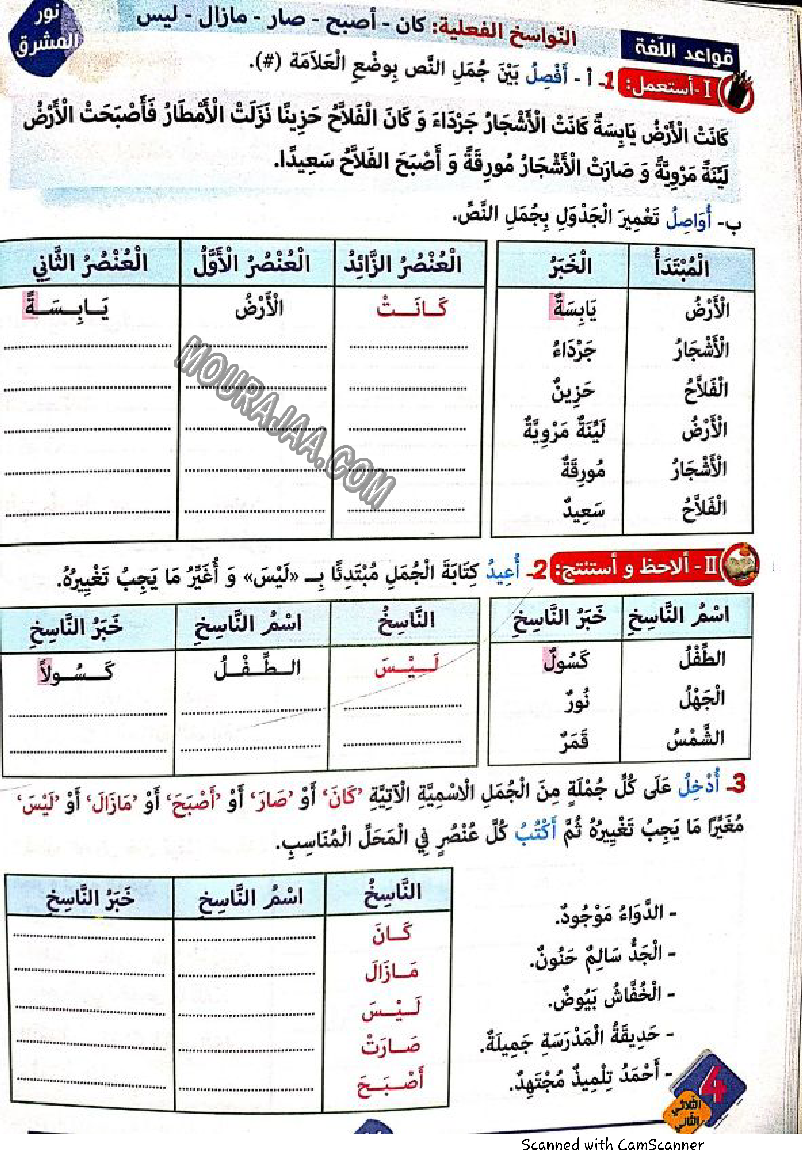 نور
المشرق
قواعد اللّغة
النّواسخ الفعلية: كان - أصبح - صار - مازال - ليس
I- أستعمل: 1- أ - أَفْصِلُ بَيْنَ جُمَلِ النَّص بِوضْعِ الْعَلاَمَة (#).
كَانَتْ الْأَرْضُ يَابِسَةً كَانَتْ الْأَشْجَارُ جَرْدَاءَ وَ كَانَ الْفَلاَّحُ حَزِينًا نَزَلَتْ الْأَمْطَارُ فَأَصْبَحَتْ الْأَرْضُ
لَيِّنَةً مَرْوِيَّةً وَ صَارَتْ الْأَشْجَارُ مُورِقَةً وَ أَصْبَحَ الفَلاَّحُ سَعِيدًا.
ب- أُوَاصِلُ تَعْمِيرَ الْجَدْوَلِ بِجُمَلِ النَّصِّ.
الْمُبْتَدَأُ الْخَبَرُ الْعُنْصُرُ الزَّائِدُ الْعُنْصُرُ الْأَوَّلُ الْعُنْصُرُ الثَّانِي
الْأَرْضُ يَابِسَةٌ كَـانَـتْ الْأَرْضُ يَـابِـسَـةً
الْأَشْجَارُ جَرْدَاءُ
الْفَلاَّحُ حَزِينٌ
الْأَرْضُ لَيِّنَةٌ مَرْوِيَّةٌ
الْأَشْجَارُ مُورِقَةٌ
الْفَلاَّحُ سَعِيدٌ
MOURAJAA.COM
II- ألاحظ و أستنتج: 2- أُعِيدُ كِتَابَةَ الْجُمَلِ مُبْتَدِئًا بِـ «لَيْسَ» وَ أُغَيِّرُ مَا يَجِبُ تَغْيِيرُهُ.
اسْمُ النَّاسِخِ خَبَرُ النَّاسِخِ النَّاسِخُ اسْمُ النَّاسِخِ خَبَرُ النَّاسِخِ
الطِّفْلُ كَسُولٌ لَـيْـسَ الـطِّـفْـلُ كَـسُـولاً
الْجَهْلُ نُورٌ
الشَّمْسُ قَمَرٌ
3- أُدْخِلُ عَلَى كُلِّ جُمْلَةٍ مِنَ الْجُمَلِ الْاسْمِيَّةِ الْآتِيَّةِ 'كَانَ' أَوْ 'صَارَ' أَوْ 'أَصْبَحَ' أَوْ 'مَازَالَ' أَوْ 'لَيْسَ'
مُغَيِّرًا مَا يَجِبُ تَغْيِيرُهُ ثُمَّ أَكْتُبُ كُلَّ عُنْصُرٍ فِي الْمَحَلِّ الْمُنَاسِبِ.
النَّاسِخُ اسْمُ النَّاسِخِ خَبَرُ النَّاسِخِ
- الدَّوَاءُ مَوْجُودٌ. كَـانَ
- الْجَدُّ سَالِمٌ حَنُونٌ. مَـازَالَ
- الْخُفَّاشُ بَيُوضٌ. لَـيْـسَ
- حَدِيقَةُ الْمَدْرَسَةِ جَمِيلَةٌ. صَـارَتْ
- أَحْمَدُ تِلْمِيذٌ مُجْتَهِدٌ. أَصْـبَـحَ
4
الثلاثي
الثاني
Scanned with CamScanner